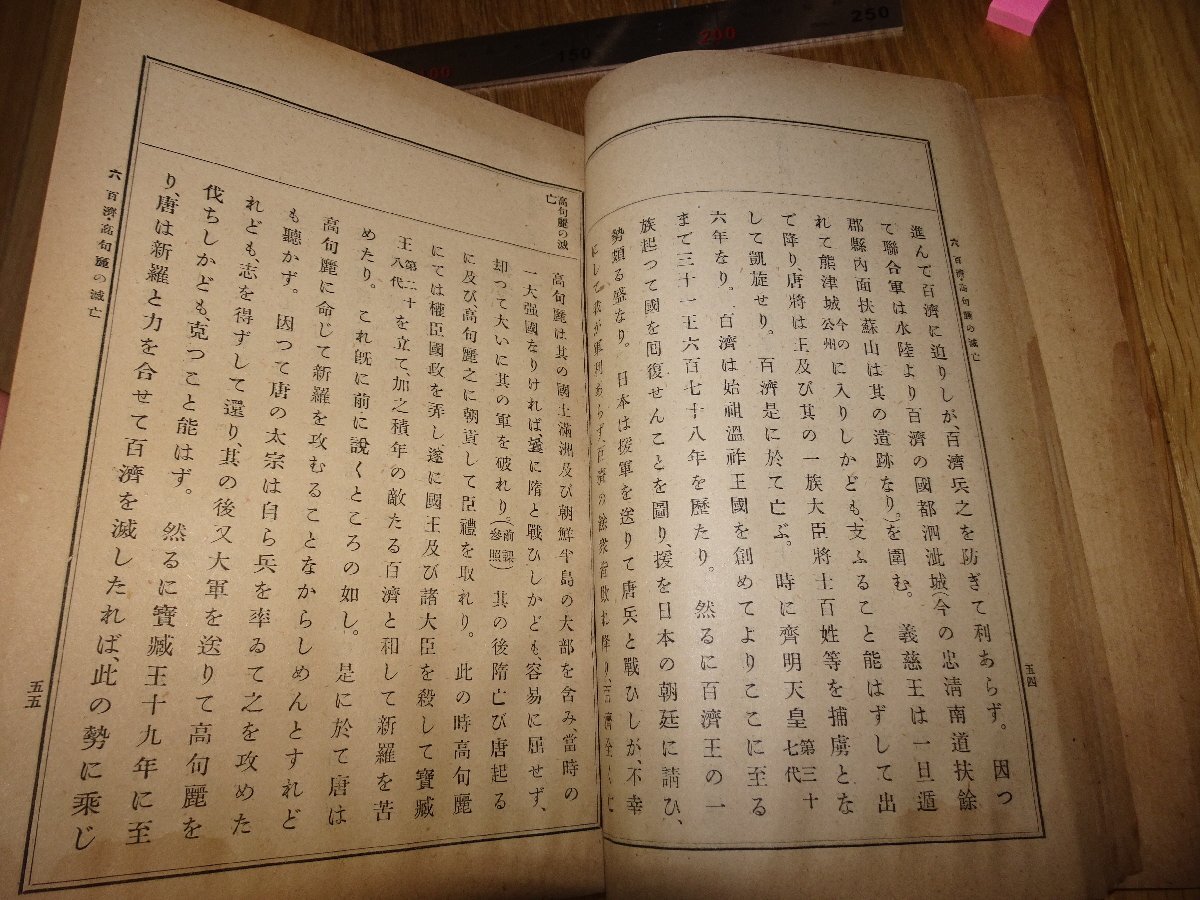 六 百濟・高句麗の滅亡
五四
進んで百濟に迫りしが、百濟兵之を防ぎて利あらず。因つ
て聯合軍は水陸より百濟の國都泗沘城(今の忠淸南道扶餘
郡縣內面扶蘇山は其の遺跡なり。)を圍む。義慈王は一旦遁
れて熊津城今の公州に入りしかども、支ふること能はずして出
で降り唐將は王及び其の一族大臣將士百姓等を捕虜とな
して凱旋せり。百濟是に於て亡ぶ。時に齊明天皇第三十七代
六年なり。百濟は始祖溫祚王國を創めてよりここに至る
まで三十一王六百七十八年を歷たり。然るに百濟王の一
族起つて國を囘復せんことを圖り、援を日本の朝廷に請ひ、
勢頗る盛なり。日本は援軍を送りて唐兵と戰ひしが、不幸
にして我が軍利あらず、百濟の
高句麗の滅亡
高句麗は其の國土滿洲及び朝鮮半島の大部を含み、當時の
一大强國なりければ曩に隋と戰ひしかども、容易に屈せず、
却つて大いに其の軍を破れり。(前課參照)其の後隋亡び唐起る
に及び、高句麗之に朝貢して臣禮を取れり。此の時高句麗
にては權臣國政を弄し、遂に國王及び諸大臣を殺して寶臧
王第二十八代を立て、加之積年の敵たる百濟と和して新羅を苦
めたり。これ旣に前に說くところの如し。是に於て唐は
高句麗に命じて新羅を攻むることなからしめんとすれど
も聽かず。因つて唐の太宗は自ら兵を率ゐて之を攻めた
れども、志を得ずして還り、其の後又大軍を送りて高句麗を
伐ちしかども、克つこと能はず。然るに寶臧王十九年に至
り、唐は新羅と力を合せて百濟を滅したれば、此の勢に乘じ
六 百濟・高句麗の滅亡
五五
100
150
200
250